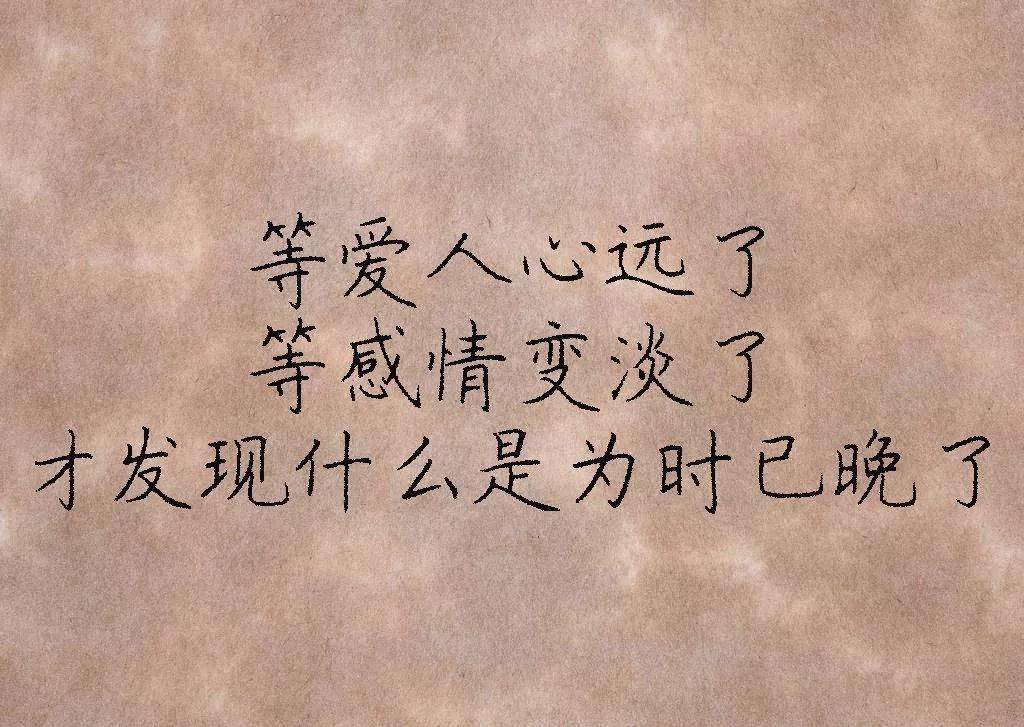 等爱人心远了
等感情变淡了
才发现什么是为时已晚了